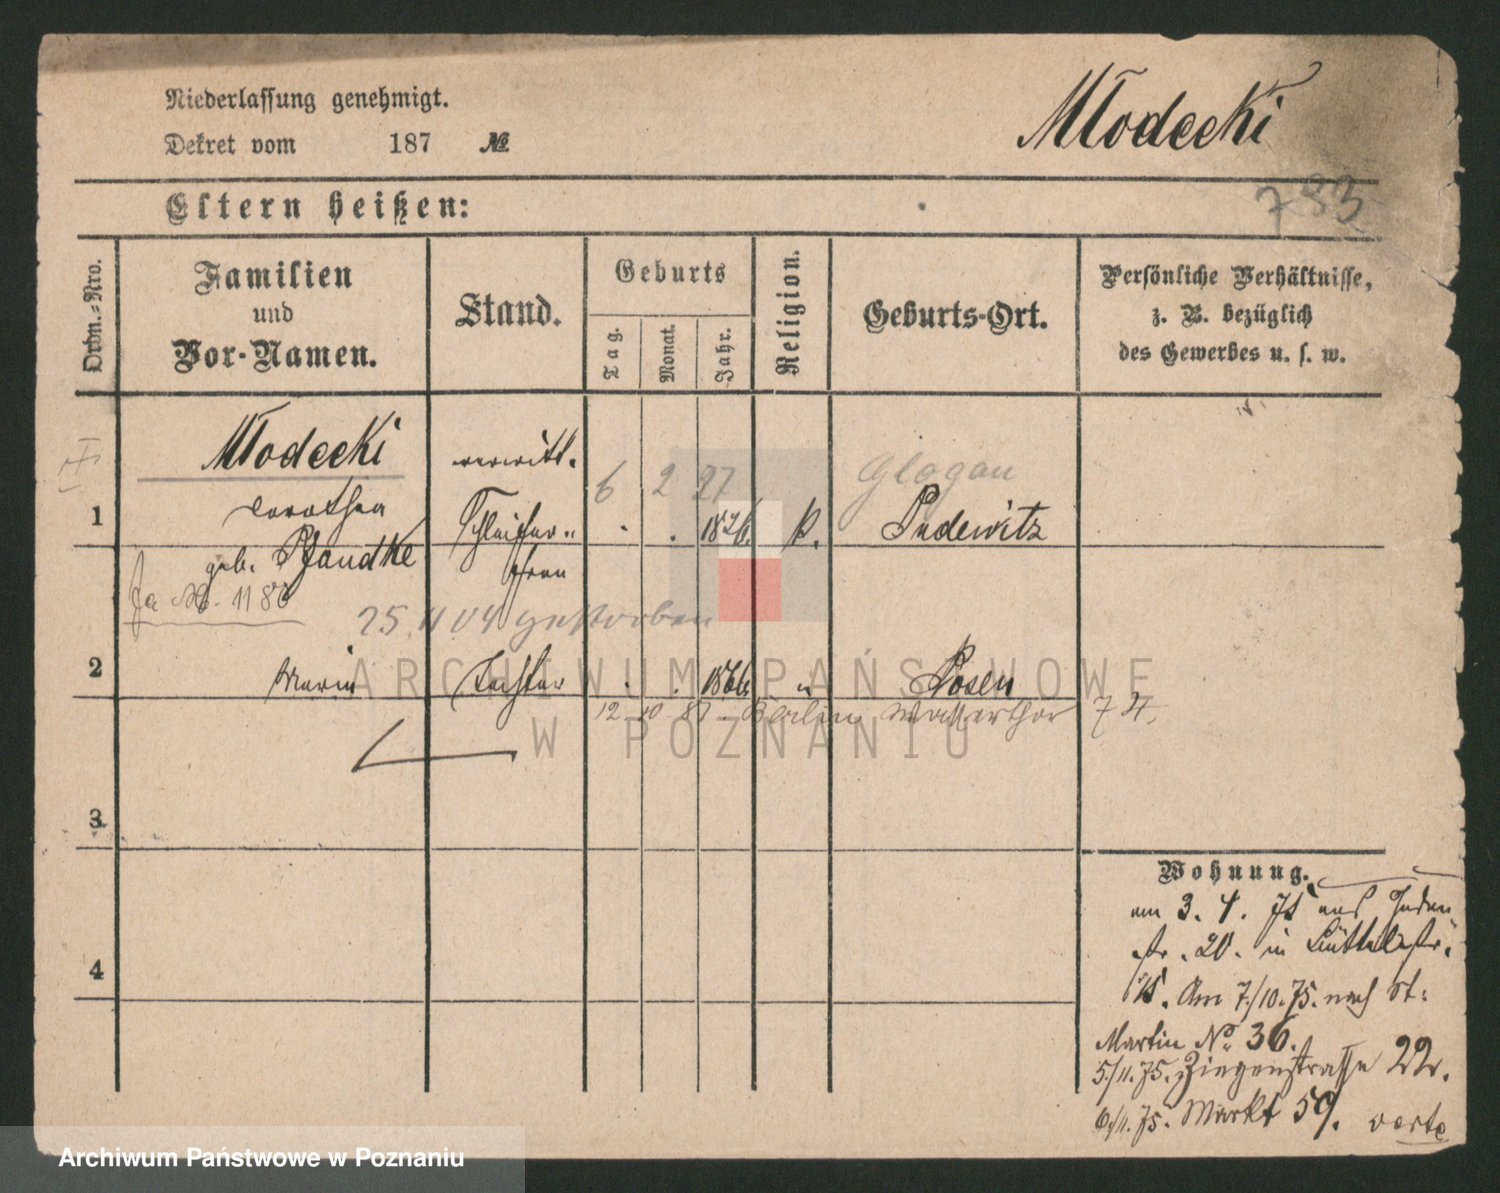 Niederlassung genehmigt.
Dekret vom 187 №
Młodecki
793
Eltern heißen:
Ordn.-Nro.
Familien
und
Vor-Namen.
Stand.
Geburts
Tag.
Monat.
Jahr.
Religion.
Geburts-Ort.
Persönliche Verhältnisse,
z. B. bezüglich
des Gewerbes u. s. w.
Młodecki
verwitt.
6 2 27
Glogau
1
Dorothea
Schleifer-
1826.
k.
Pudewitz
geb. Pfandke
frau
Ja No. 1180
25 11 04 gestorben
2
Maria
Tochter
1866
"
Posen
12 10 81 - Berlin Wasserthor 74.
3
4
Wohnung.
am 3. 4. 75 aus Juden
str. 20. in Büttelstr.
18. Am 7./10. 75. nach St:
Martin No. 36.
5./11. 75. Ziegenstrasse 22.
6./11. 75. Markt 59. verte
ARCHIWUM PAŃSTWOWE
W POZNANIU
Archiwum Państwowe w Poznaniu